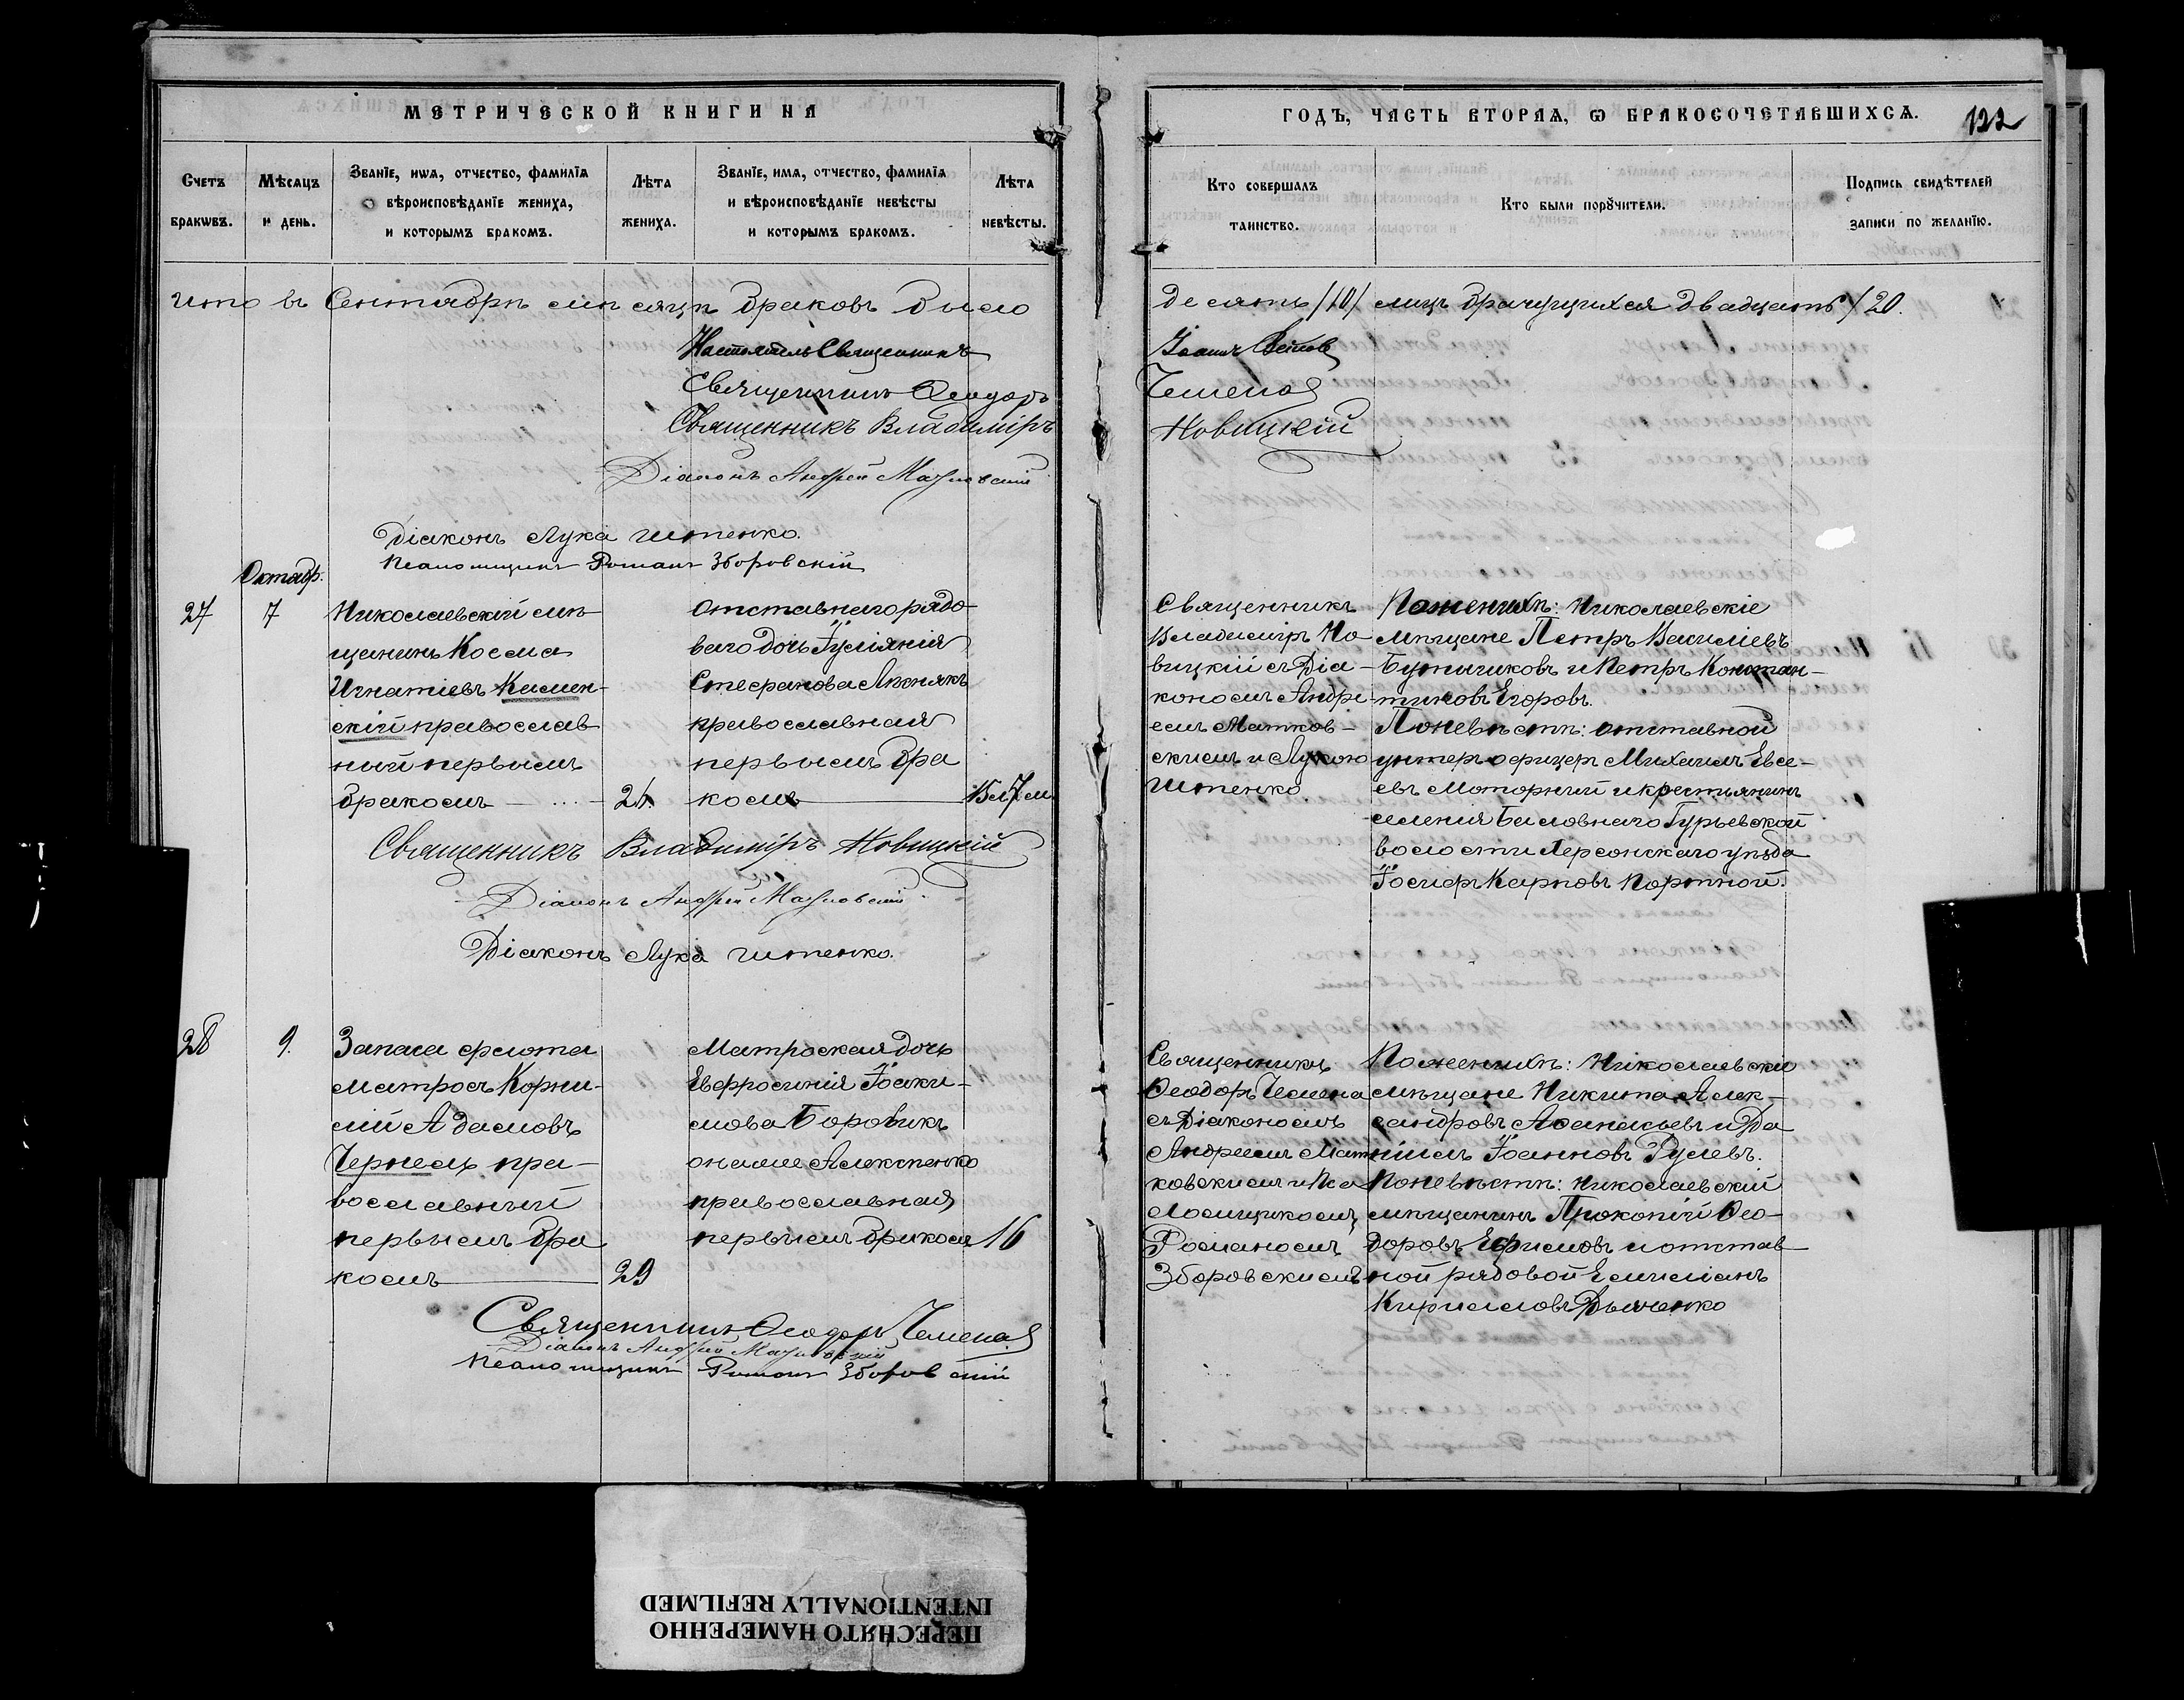 МЕТРИЧЕСКОЙ КНИГИ НА
ГОДЪ, ЧАСТЬ ВТОРАѦ, Ѡ БРАКОСОЧЕТАВШИХСѦ.
122
Счетъ браковъ.
Мѣсяцъ и день.
Званіе, имя, отчество, фамилія
вѣроисповѣданіе жениха,
и которымъ бракомъ.
Лѣта
жениха.
Званіе, имя, отчество, фамилія
и вѣроисповѣданіе невѣсты
и которымъ бракомъ.
Лѣта
невѣсты.
Кто совершалъ
таинство.
Кто были поручители.
Подпись свидѣтелей
записи по желанію.
Что въ Сентябрѣ мѣсяцѣ браковъ было десять /10/ лицъ брачущихся двадцать /20.
Настоятель Священникъ Іоаннъ
Священникъ Ѳеодоръ Чемена
Священникъ Владиміръ Новицкій
Діаконъ Андрей Матковскій
Діаконъ Лука Штенко.
Псаломщикъ Романъ Зборовскій
Октябр.
27
7
Николаевскій мѣ-
щанинъ Косма
Игнатіевъ Камен-
скій православ
ный первымъ
бракомъ
24.
Отставнаго рядо-
ваго дочь Іуліянія
Стефанова
православная
первымъ бра
комъ
15 л 7 м.
Священникъ
Владиміръ Но
вицкій съ Діа-
кономъ Андре
емъ Матков-
скимъ и Лукою
Штенко
По женихѣ: Николаевскіе
мѣщане Петръ Василіевъ
и Петръ Констан-
тиновъ Егоровъ.
По невѣстѣ: отставной
унтеръ-офицеръ Михаилъ Евсе-
евъ Моторный и крестьянинъ
селенія Баловнаго Гурьевской
волости Херсонскаго уѣзда
Іосифъ Карповъ Портной.
Священникъ Владиміръ Новицкій
Діаконъ Андрей Матковскій
Діаконъ Лука Штенко.
28
9.
Запаса флота
матросъ Корни-
лій Адамовъ
Чернецъ пра-
вославный
первымъ бра
комъ
29
Матроская дочь
Евфросинія Іоаки-
мова Боровикъ
она же Алексѣенко
православная
первымъ бракомъ
16
Священникъ
Ѳеодоръ Чемена
съ Діакономъ
Андреемъ Мат
ковскимъ и Пса
ломщикомъ
Романомъ
Зборовскимъ
По женихѣ: Николаевскіе
мѣщане Никита Алек-
сандровъ Аѳанасьевъ и Да
ніилъ Іоанновъ Гусевъ.
По невѣстѣ: Николаевскій
мѣщанинъ Прокопій Ѳео-
доровъ Ефимовъ и отстав-
ной рядовой Емиліанъ
Кирилловъ Дьяченко
Священникъ Ѳеодоръ Чемена
Діаконъ Андрей Матковскій
Псаломщикъ Романъ Зборовскій
ПЕРЕСНЯТО НАМЕРЕННО
INTENTIONALLY REFILMED